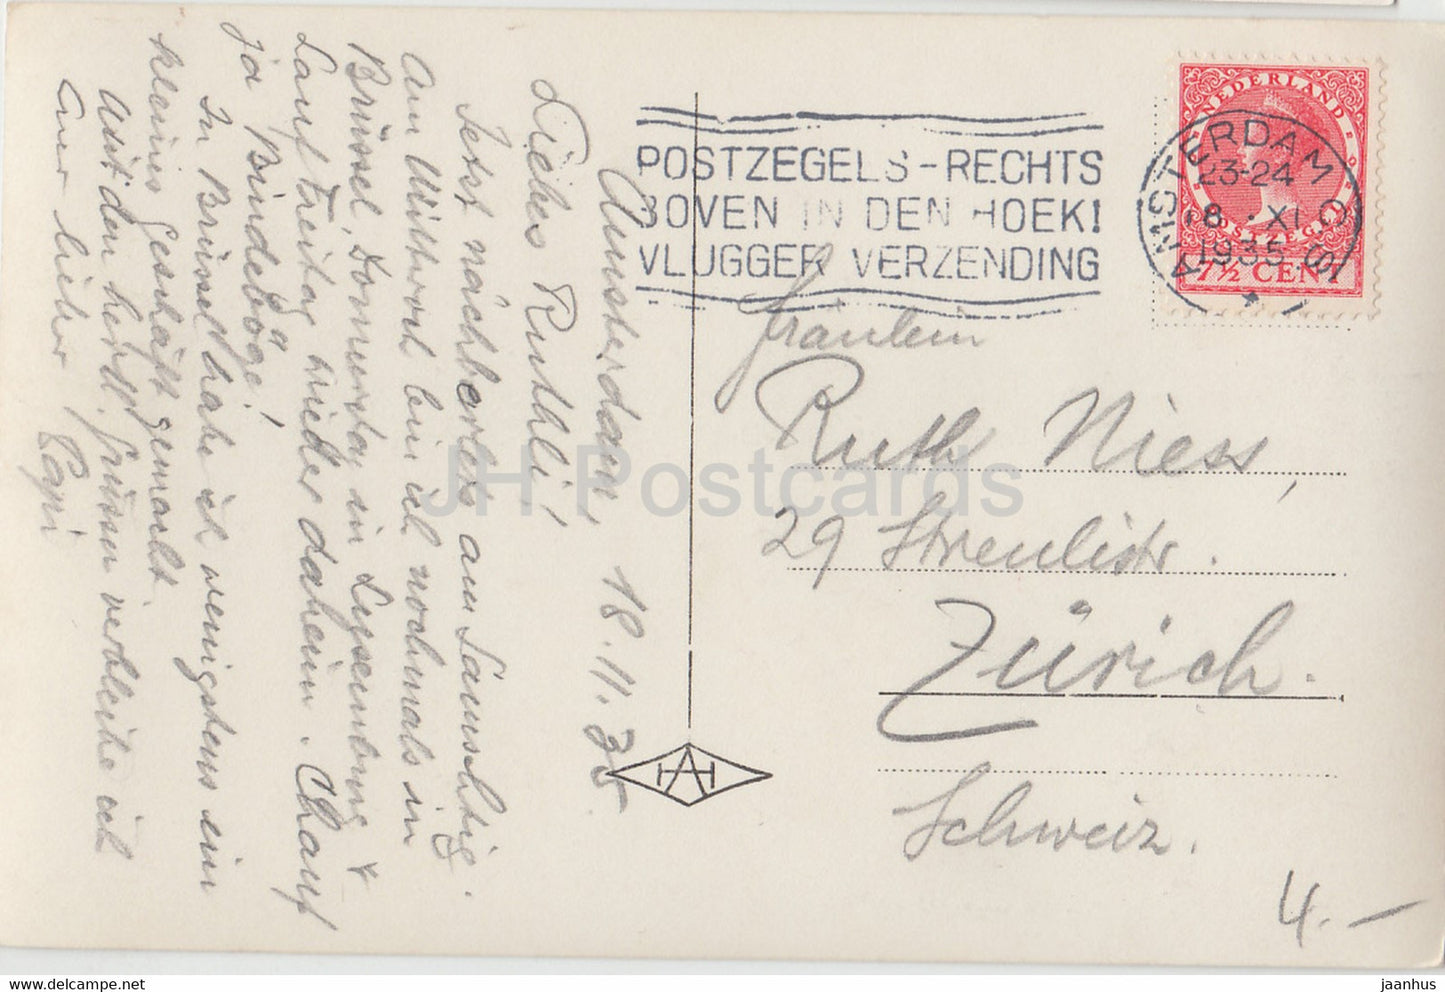 Amsterdam, 18.11.35.
Liebes Ruthli!
Jetzt nächterles am Samschtig.
Am Mittwoch bin ich nochmals in
Brüssel, Donnerstag in Luxemburg &
Lauf Freitag wieder daheim. Chauf
ja Bindeböge!
In Brüssel habe ich wenigstens ein
kleines Geschäft gemacht.
Mit den herzl. Grüssen verbleibe ich
Euer lieber Papi
POSTZEGELS-RECHTS
BOVEN IN DEN HOEK!
VLUGGER VERZENDING
NEDERLAND
POSTZEGEL
7½ CENT
AMSTERDAM C.S.
23-24
18.XI
1935
Fräulein
Ruth Niess,
29 Streulistr.
Zürich.
Schweiz.
AH
4.-
JH Postcards
www.delcampe.net
jaanhus